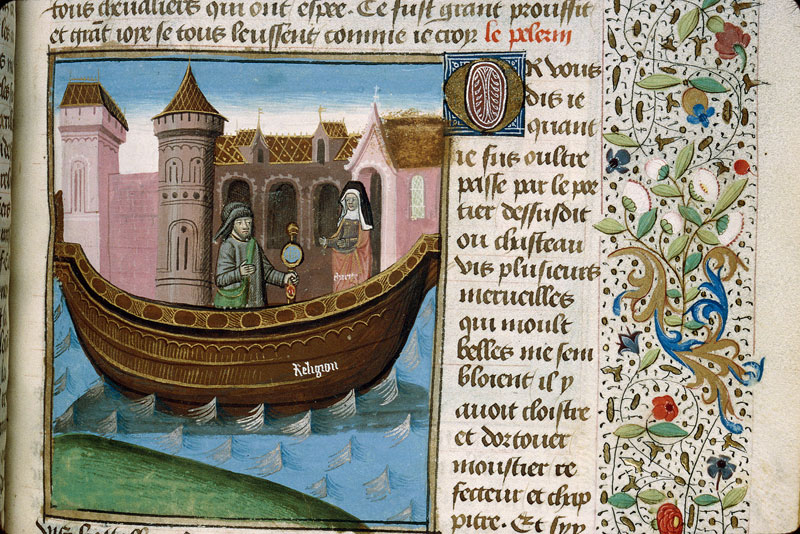 tous cheualiers qui ont espee. Ce fust grant prouffit
et grāt ioye se tous leussent comme ie croy le pelerin
OR vous
dis ie
quant
ie fuis oultre
passe par le por
tier dessusdit
ou chasteau
vis plusieurs
merueilles
qui moult
belles me sem
bloient il y
auoit cloistre
et dortouer
moustier re
fecteur et chap
pitre. Et syy
Religion